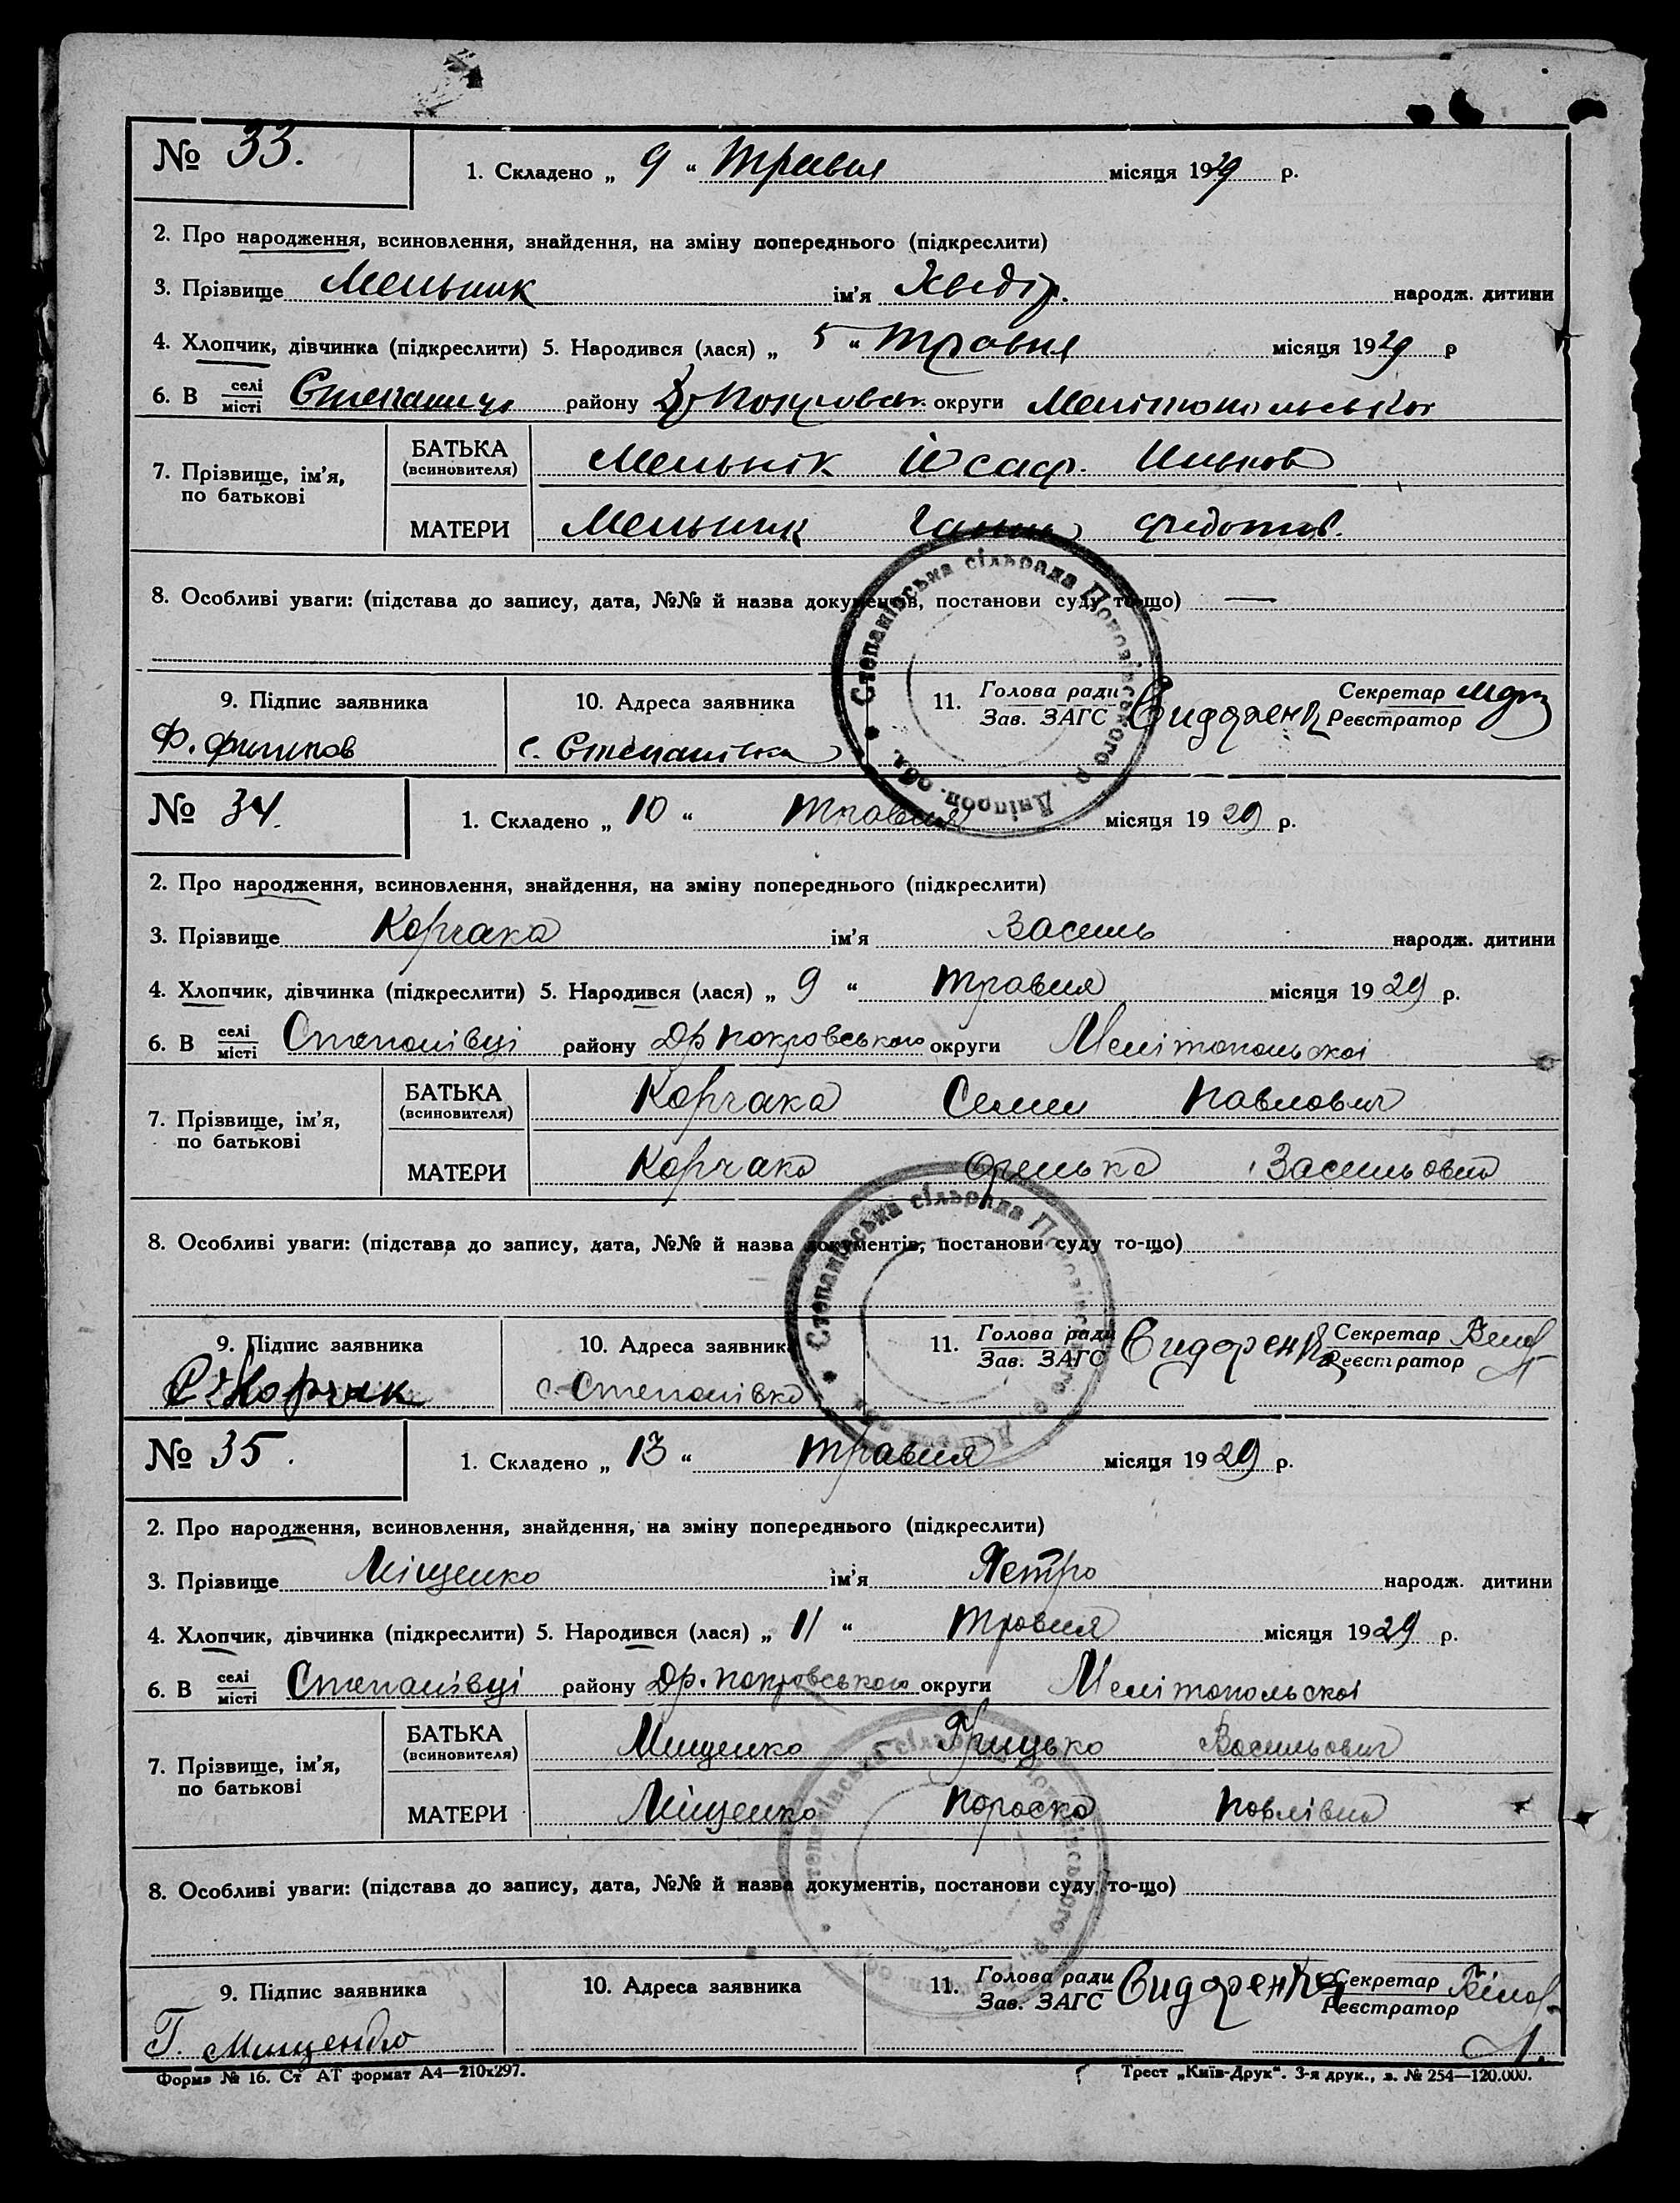 № 33.
1. Складено „ 9 “ Травня місяця 1929 р.
2. Про народження, всиновлення, знайдення, на зміну попереднього (підкреслити)
3. Прізвище Мельник ім'я Хведір. народж. дитини
4. Хлопчик, дівчинка (підкреслити) 5. Народився (лася) „ 5 “ Травня місяця 1929 р
6. В селі місті району округи Мелітопольської
7. Прізвище, ім'я, по батькові
БАТЬКА (всиновителя) Мельнік
МАТЕРИ Мельник Ганна Федотов.
8. Особливі уваги: (підстава до запису, дата, №№ й назва документів, постанови суду то-що) —
9. Підпис заявника 10. Адреса заявника 11. Голова ради Зав. ЗАГС Секретар Реєстратор
с. Степанівка
Степанівська сільрада Попозівського р. Дніпроп. обл.
№ 34.
1. Складено „ 10 “ Травня місяця 1929 р.
2. Про народження, всиновлення, знайдення, на зміну попереднього (підкреслити)
3. Прізвище Корчака ім'я Василь народж. дитини
4. Хлопчик, дівчинка (підкреслити) 5. Народився (лася) „ 9 “ Травня місяця 1929 р.
6. В селі місті Степанівці району Др покровського округи Мелітопольскої
7. Прізвище, ім'я, по батькові
БАТЬКА (всиновителя) Корчака Семен Павлович
МАТЕРИ Корчака Оренька Васильовна
8. Особливі уваги: (підстава до запису, дата, №№ й назва документів, постанови суду то-що)
9. Підпис заявника 10. Адреса заявника 11. Голова ради Зав. ЗАГС Секретар Реєстратор
Корчак с. Степанівка
Степанівська сільрада
№ 35.
1. Складено „ 13 “ Травня місяця 1929 р.
2. Про народження, всиновлення, знайдення, на зміну попереднього (підкреслити)
3. Прізвище Міщенко ім'я Петро народж. дитини
4. Хлопчик, дівчинка (підкреслити) 5. Народився (лася) „ 11 “ Травня місяця 1929 р.
6. В селі місті Степанівці району Др. покровського округи Мелітопольскої
7. Прізвище, ім'я, по батькові
БАТЬКА (всиновителя) Мищенко Грицько Васильович
МАТЕРИ Міщенко Параска Павлівна
8. Особливі уваги: (підстава до запису, дата, №№ й назва документів, постанови суду, то-що)
9. Підпис заявника 10. Адреса заявника 11. Голова ради Зав. ЗАГС Секретар Реєстратор
Г. Мищенко
Форма № 16. Ст АТ формат А4—210х297. Трест „Київ-Друк“. 3-я друк., з. № 254—120.000.